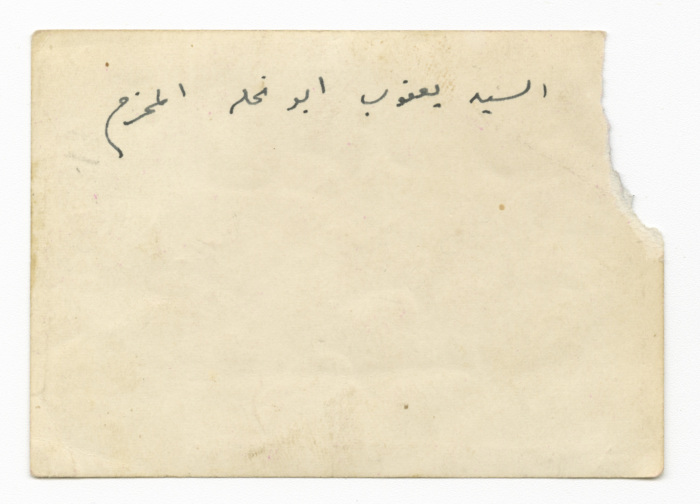 السيد يعقوب ابو نخله المحترم